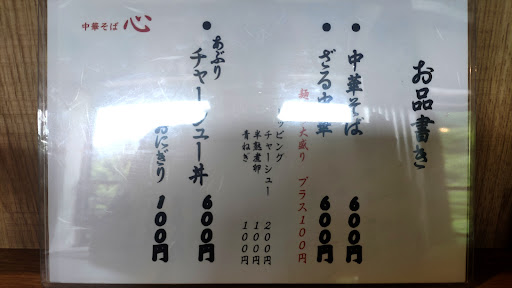 お品書き
● 中華そば 600円
● ざる中華 600円
麺 大盛り プラス100円
トッピング
チャーシュー 200円
半熟煮卵 100円
青ねぎ 100円
● あぶり チャーシュー丼 600円
おにぎり 100円
中華そば 心